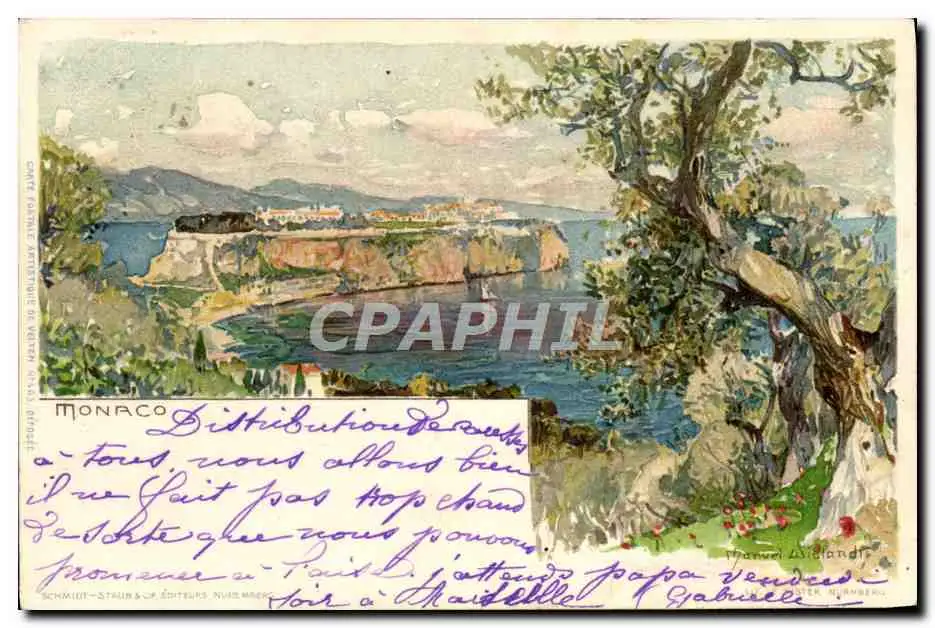 CPAPHIL
CARTE POSTALE ARTISTIQUE DE VELTEN DÉPOSÉE
MONACO
Distribution de caresses
à tous, nous allons bien
il ne fait pas trop chaud
de sorte que nous pouvons
promener à l'aise. j'attends papa vendredi
soir à Marseille Gabrielle
Manuel Wielandt
SCHMIDT-STAUB & Cie, ÉDITEURS NUREMBERG
NÜRNBERG